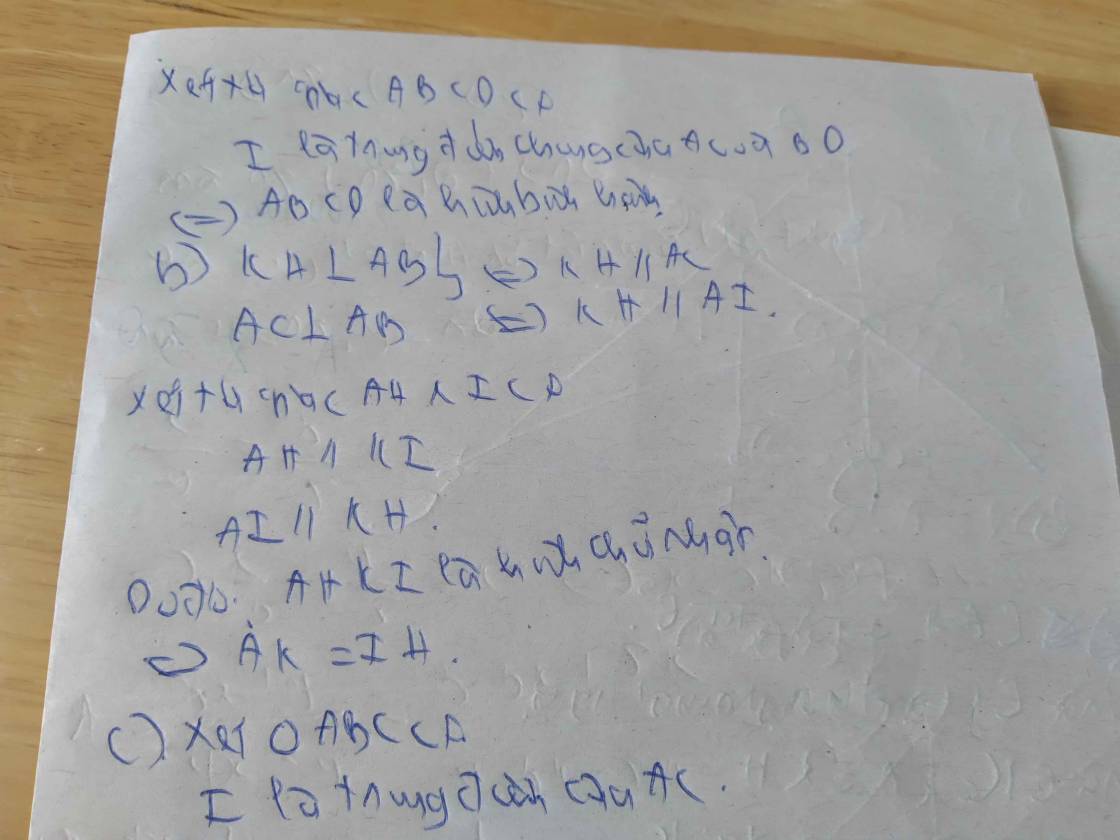 Xét tứ giác ABCD có
I là trung điểm chung của AC và BD
(=) ABCD là hình bình hành
b) KH ⊥ AB } <=> KH // AC
AC ⊥ AB <=> KH // AI.
Xét tứ giác AHKI có
AH // KI
AI // KH.
Do đó. AHKI là hình chữ nhật.
=> AK = IH.
c) Xét △ ABC có
I là trung điểm của AC.